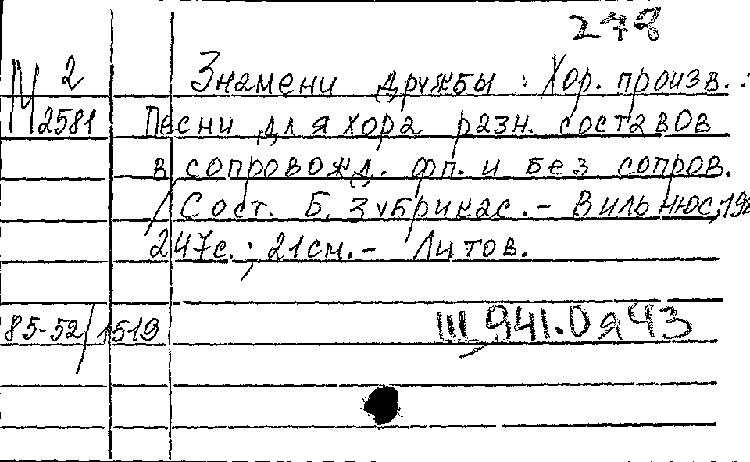 278
М 2
2581
Знамени дружбы : Хор. произв. :
Песни для хора разн. составов
в сопровожд. фп. и без сопров.
/ Сост. Б. Зубрикас. - Вильнюс, 198
247с. ; 21см. - Литов.
85-52/1519
Ш 941.0я43